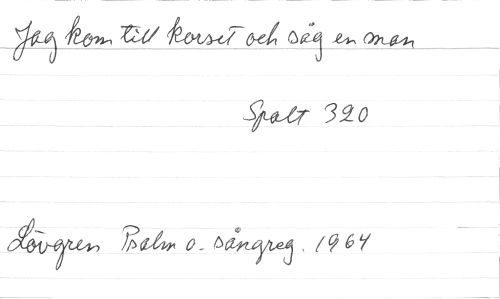 Jag kom till korset och såg en man
Spalt 320
Lövgren Psalm o. sångreg. 1964